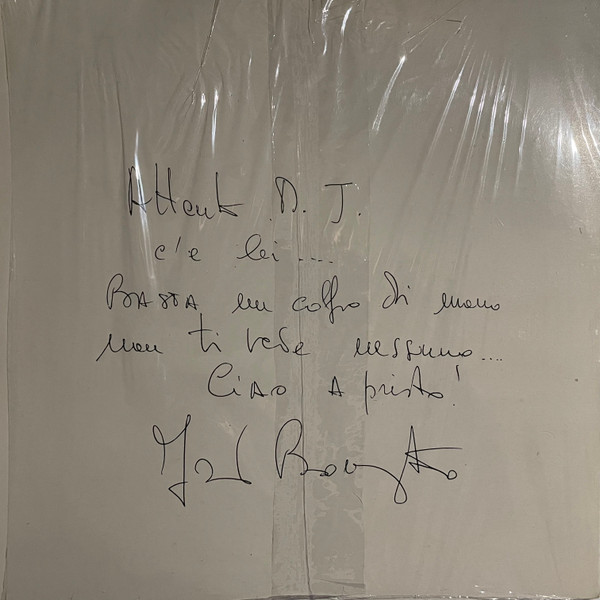 Attento D. J.
c'è lei....
BASTA un colpo di mano
non ti vede nessuno....
Ciao A presto!